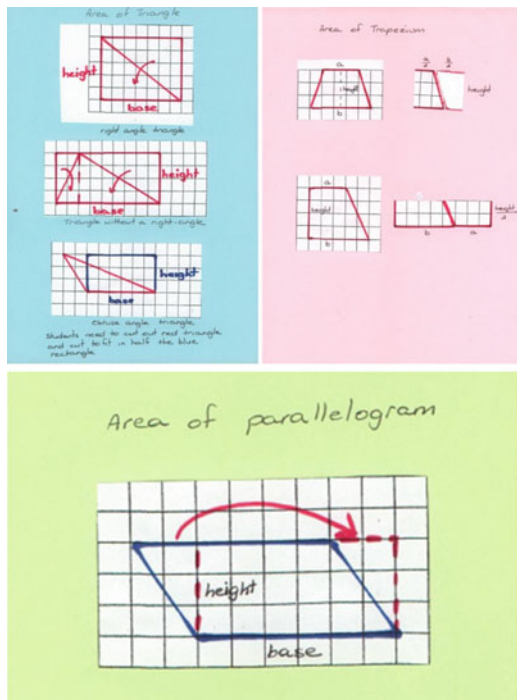 Area of Triangle
height
base
right angle triangle
height
base
Triangle without a right-angle
height
base
obtuse angle triangle
Students need to cut out red triangle
and cut to fit in half the blue
rectangle
Area of Trapezium
a
height
b
a/2 b/2
height
a
height
b
b a
height/2
Area of parallelogram
height
base